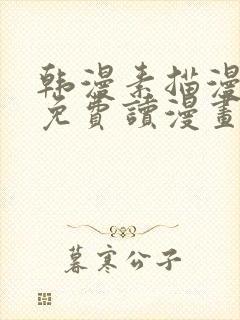 韩漫素描漫
免費讀漫畫
暮寒公子